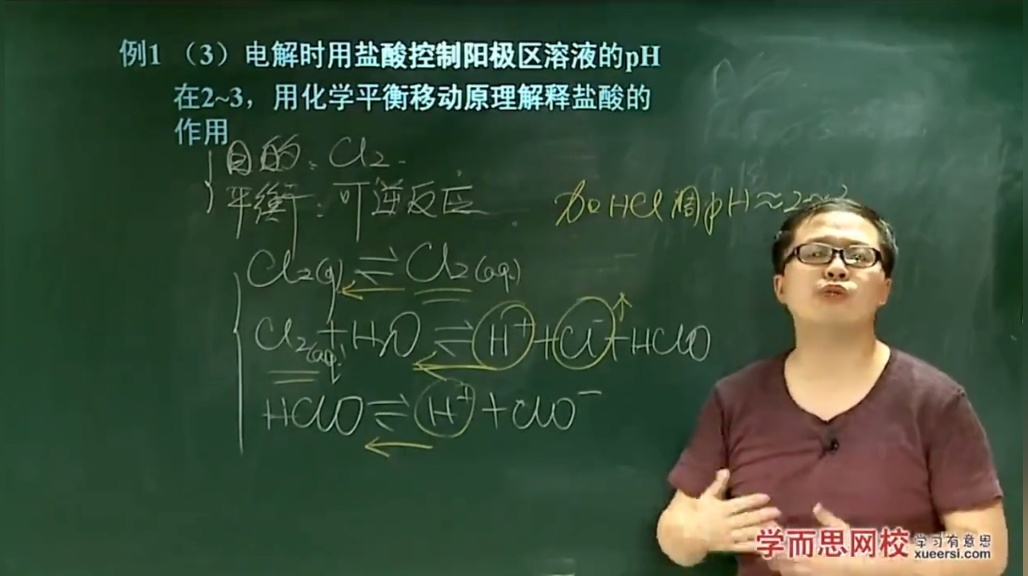 例1 （3）电解时用盐酸控制阳极区溶液的pH
在2~3，用化学平衡移动原理解释盐酸的
作用
目的：Cl₂.
平衡：可逆反应
加HCl调pH≈2~3
Cl₂(g) ⇌ Cl₂(aq)
Cl₂(aq) + H₂O ⇌ H⁺ + Cl⁻ + HClO
HClO ⇌ H⁺ + ClO⁻
学而思网校 学习有意思
xueersi.com